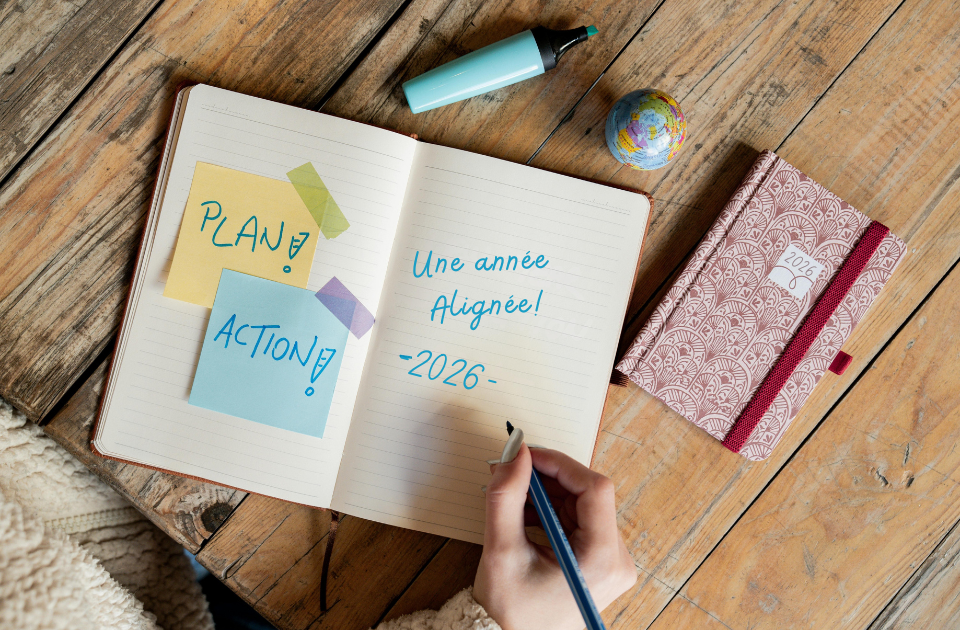 PLAN!
ACTION!
Une année
Alignée!
-2026-
2026